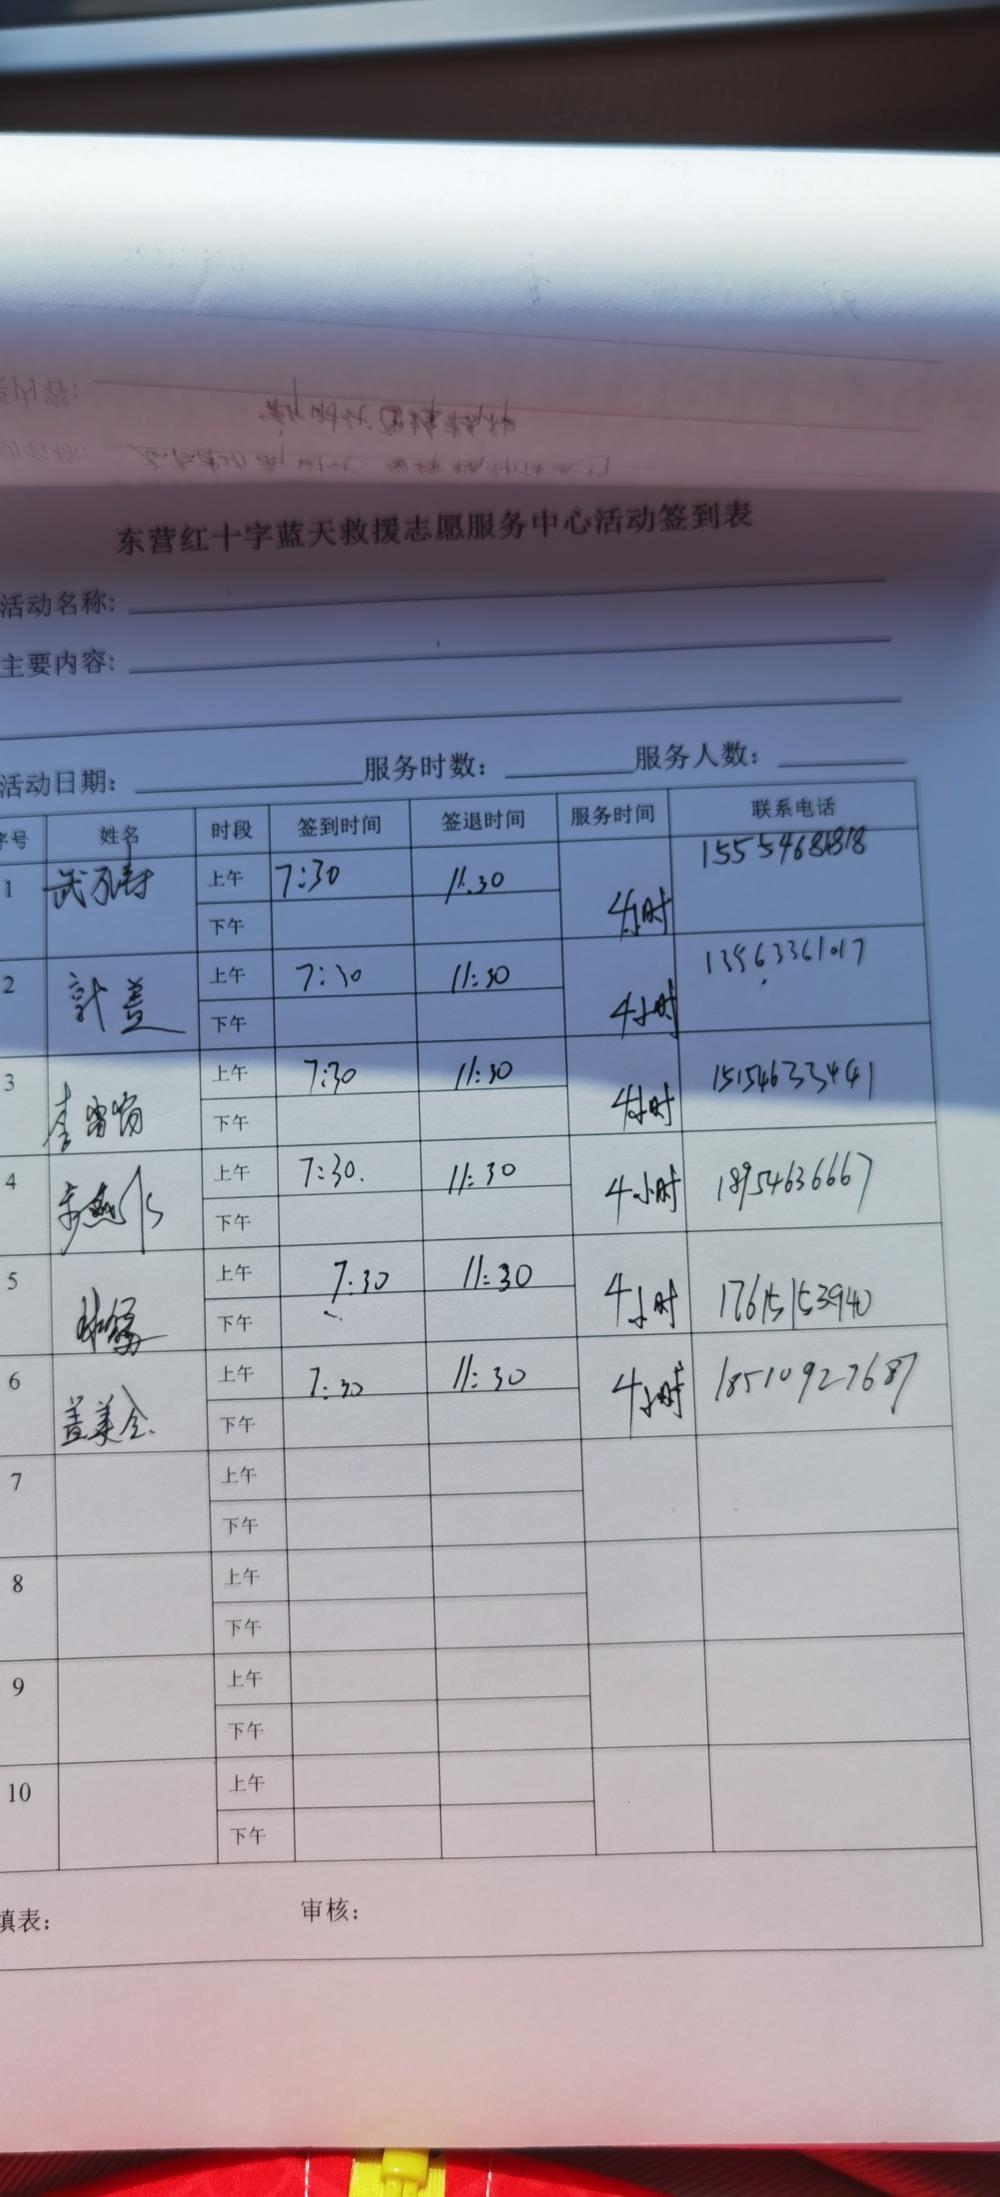 东营红十字蓝天救援志愿服务中心活动签到表
活动名称:
主要内容:
活动日期: 服务时数: 服务人数:
序号 姓名 时段 签到时间 签退时间 服务时间 联系电话
1 上午 7:30 11:30 4小时
下午
2 上午 7:30 11:30 4小时 13563361017
下午
3 上午 7:30 11:30 4小时 15154633441
下午
4 上午 7:30. 11:30 4小时 18954636667
下午
5 上午 7:30 11:30 4小时 17615153940
下午
6 盖美令 上午 7:30 11:30 4小时 18510927687
下午
7 上午
下午
8 上午
下午
9 上午
下午
10 上午
下午
填表: 审核: